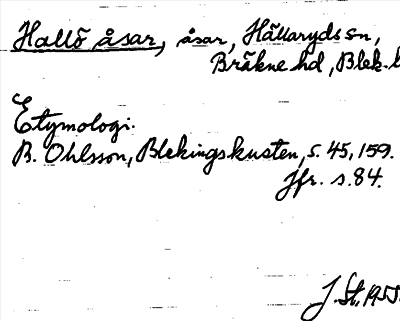 Hallö åsar, åsar, Hällaryds sn,
Bräkne hd, Blek. l
Etymologi.
B. Ohlsson, Blekingskusten, s. 45, 159.
Jfr. s. 84.
J. St. 1955